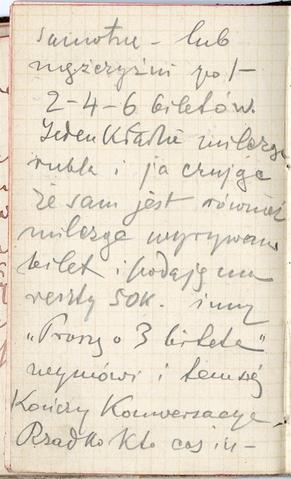 samotne – lub
mężczyźni po 1–
2–4–6 biletów.
Jeden kładzie milcząc
rubla i ja czując
że sam jest również
milcząc wyrywam
bilet i podaję mu
reszty 50k. inny
„Proszę o 3 bileta"
wymówi i tem się
Kończy Konwersacye.
Rzadko Kto coś in–